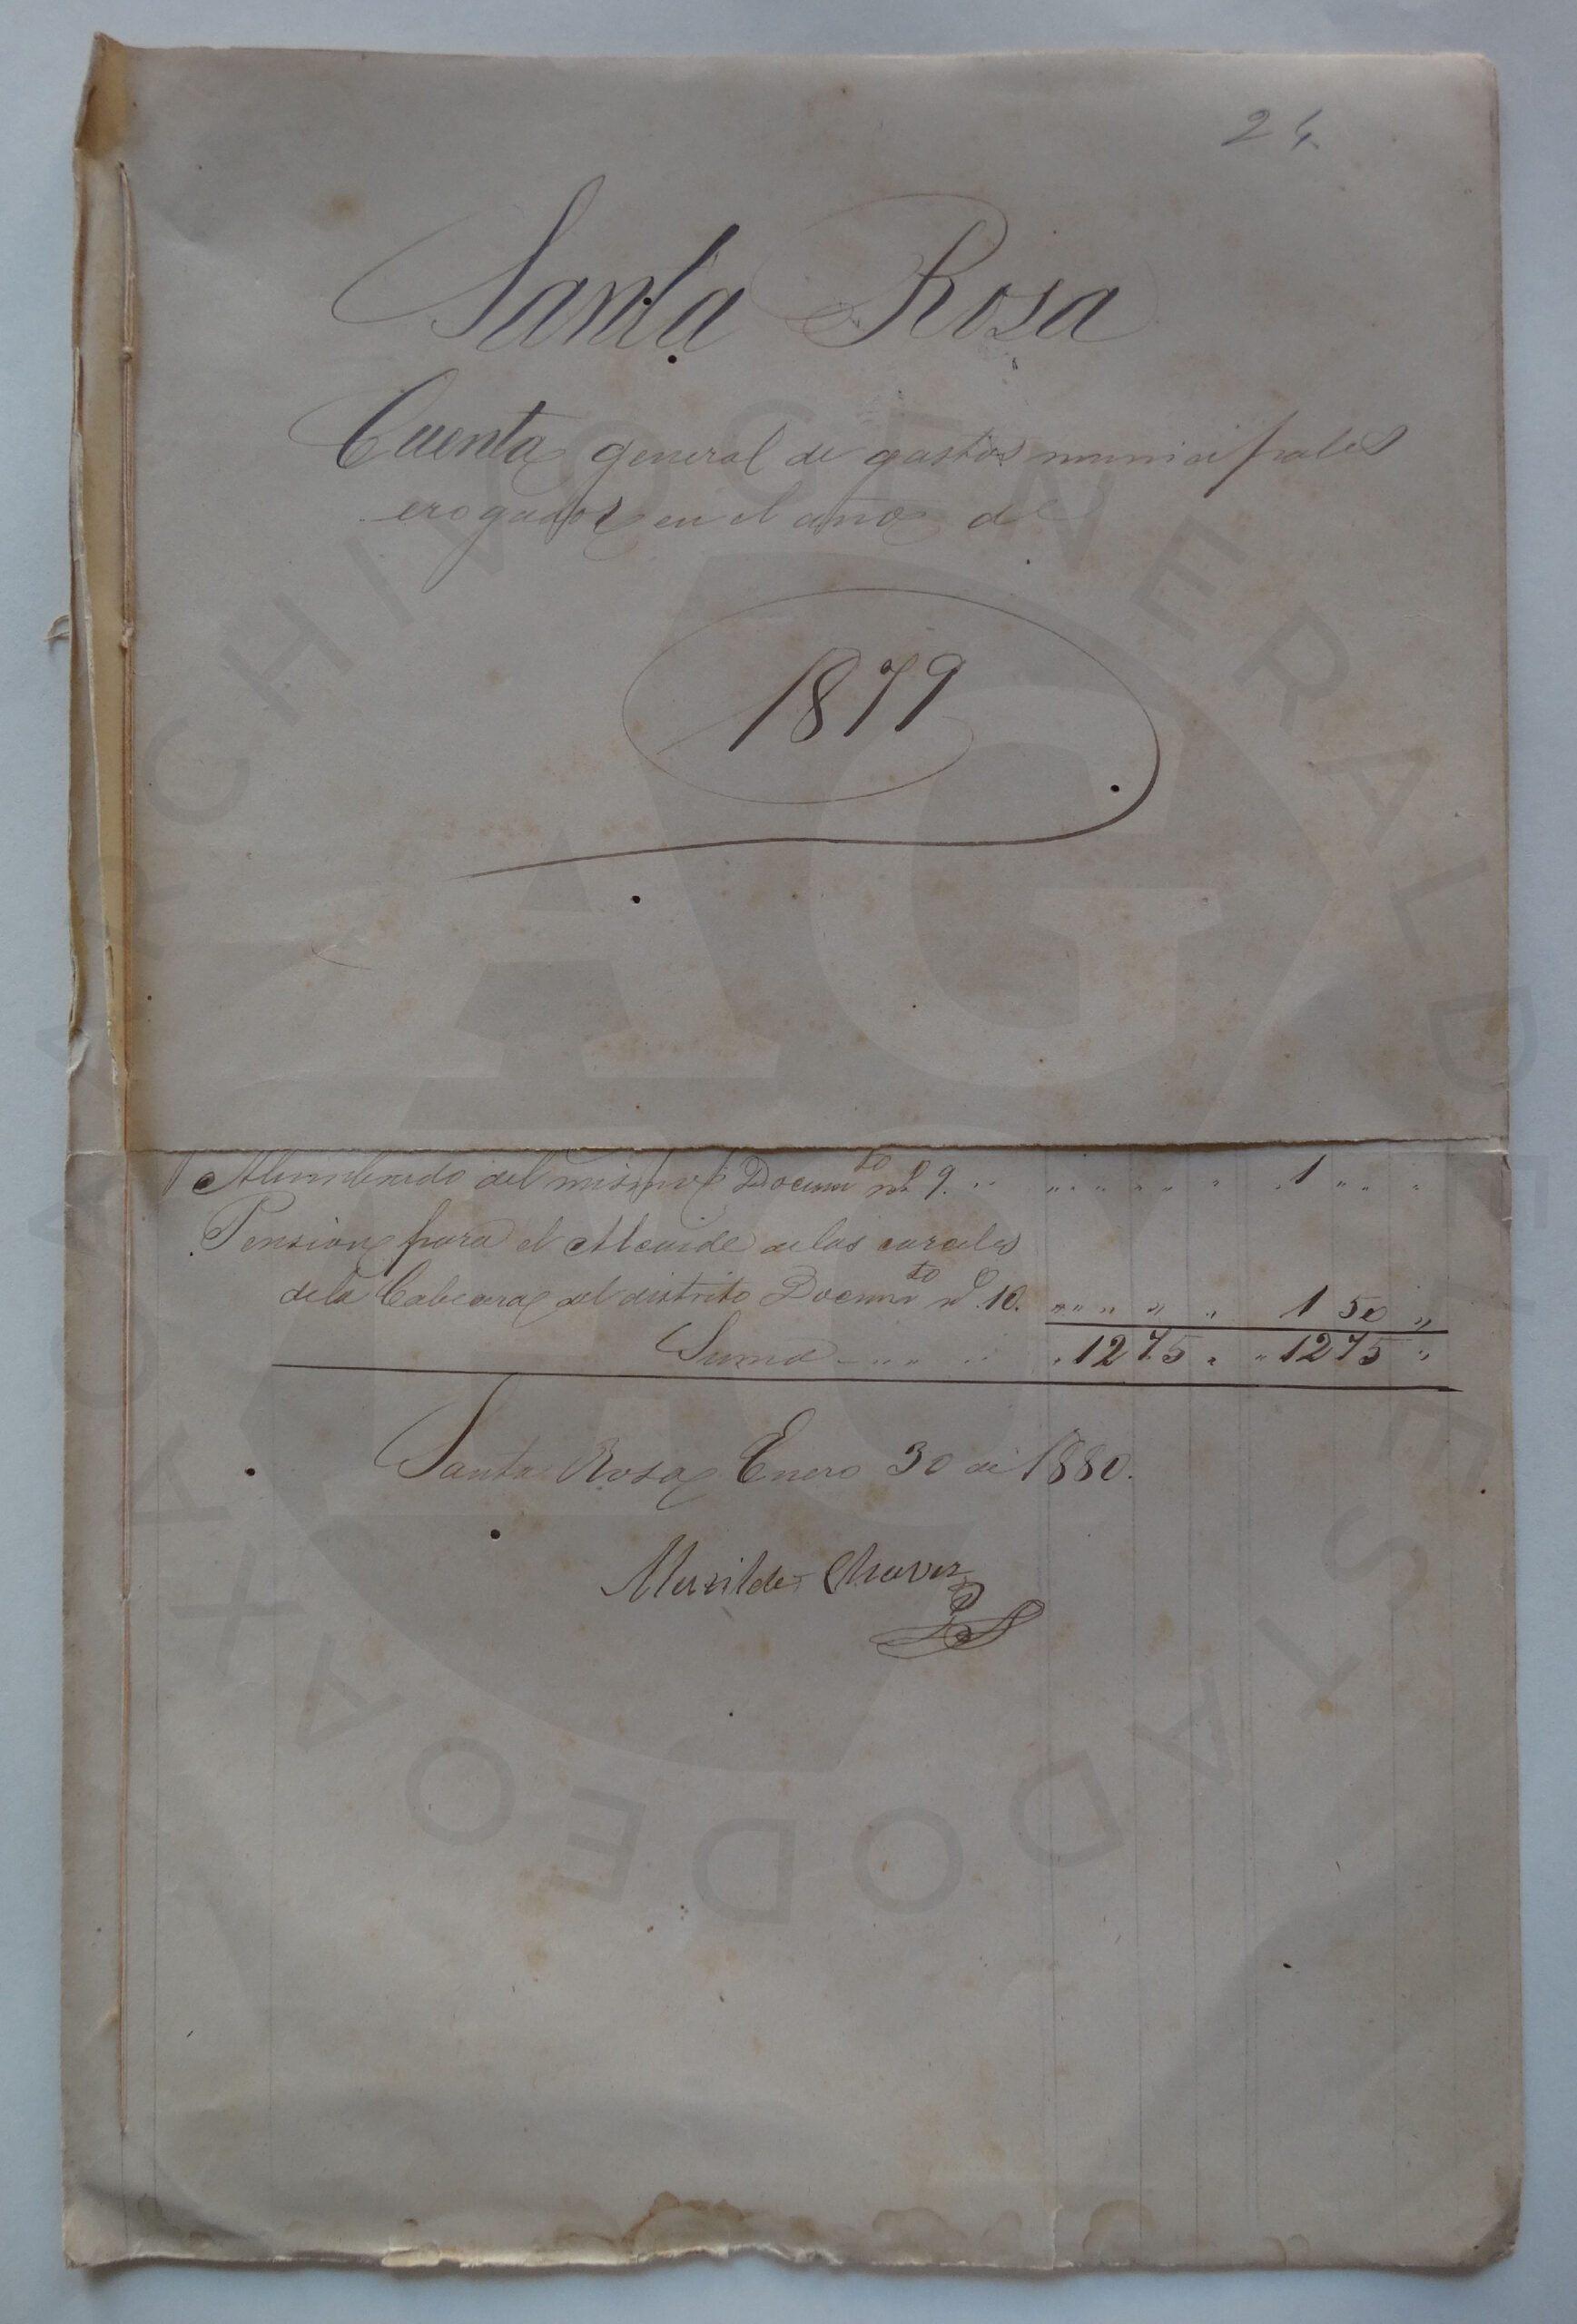 24
Santa Rosa
Cuenta general de gastos municipales
erogados en el año de
1879
Alumbrado del mismo Documto nº 9. " " " " " " 1 " " "
Pension para el Alcaide de las carceles
de la Cabecera del distrito Documto nº 10. " " " " " 1 50 "
Suma " " " 12 75 " " 12 75 "
Santa Rosa Enero 30 de 1880.
Chavez
ARCHIVO GENERAL DEL ESTADO DE OAXACA
AG